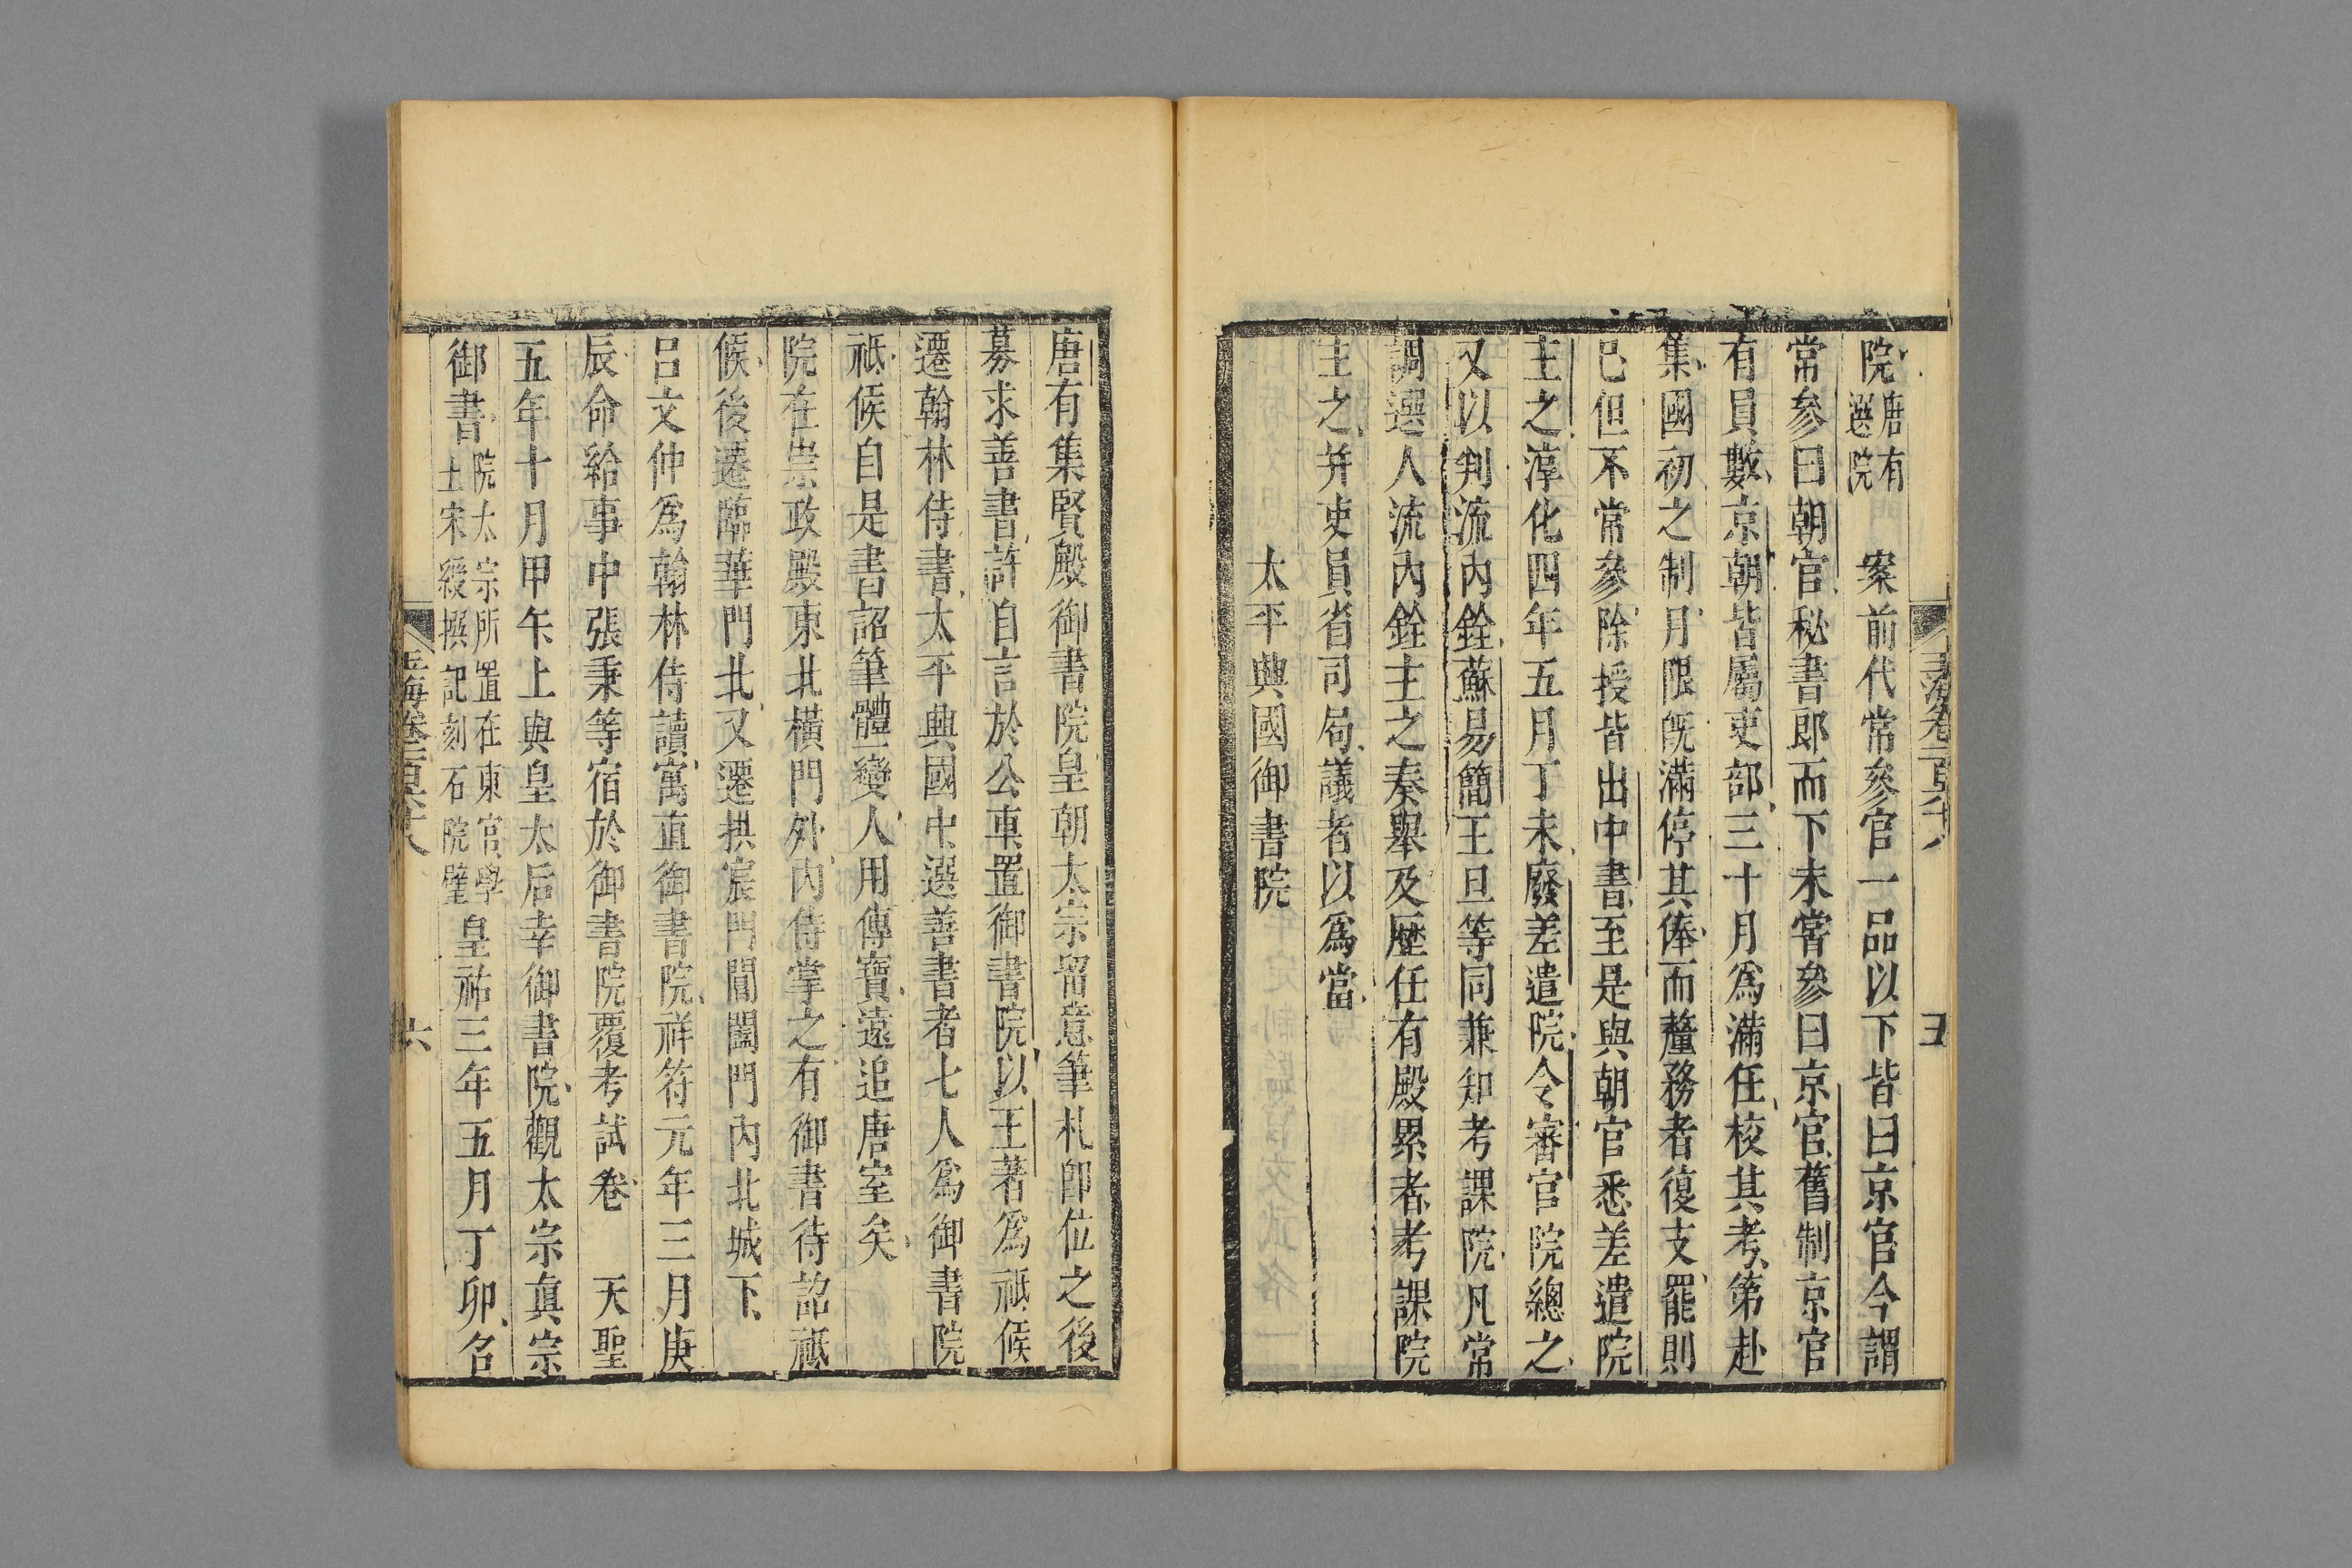 院唐有選院　案前代常參官一品以下皆曰京官今謂
常參曰朝官秘書郎而下未嘗參曰京官舊制京官
有員數京朝皆屬吏部三十月爲滿任校其考第赴
集國初之制月限旣滿停其俸而釐務者復支罷則
已但不常參除授皆出中書至是與朝官悉差遣院
主之淳化四年五月丁未廢差遣院令審官院總之
又以判流內銓蘇易簡王旦等同兼知考課院凡常
調選人流內銓主之奏舉及歷任有殿累者考課院
主之并吏員省司局議者以爲當
太平興國御書院
唐有集賢殿御書院皇朝太宗留意筆札卽位之後
募求善書許自言於公車置御書院以王著爲祗候
遷翰林侍書太平興國中選善書者七人爲御書院
祗候自是書詔筆體一變人用傳寶遠追唐室矣
院在崇政殿東北橫門外內侍掌之有御書待詔祗
候後遷臨華門北又遷拱宸門閶闔門內北城下
呂文仲爲翰林侍讀寓直御書院祥符元年三月庚
辰命給事中張秉等宿於御書院覆考試卷　天聖
五年十月甲午上與皇太后幸御書院觀太宗眞宗
御書院太宗所置在東宮學士宋綬撰記刻石院壁皇祐三年五月丁卯名
玉海卷一百六十八
五
六